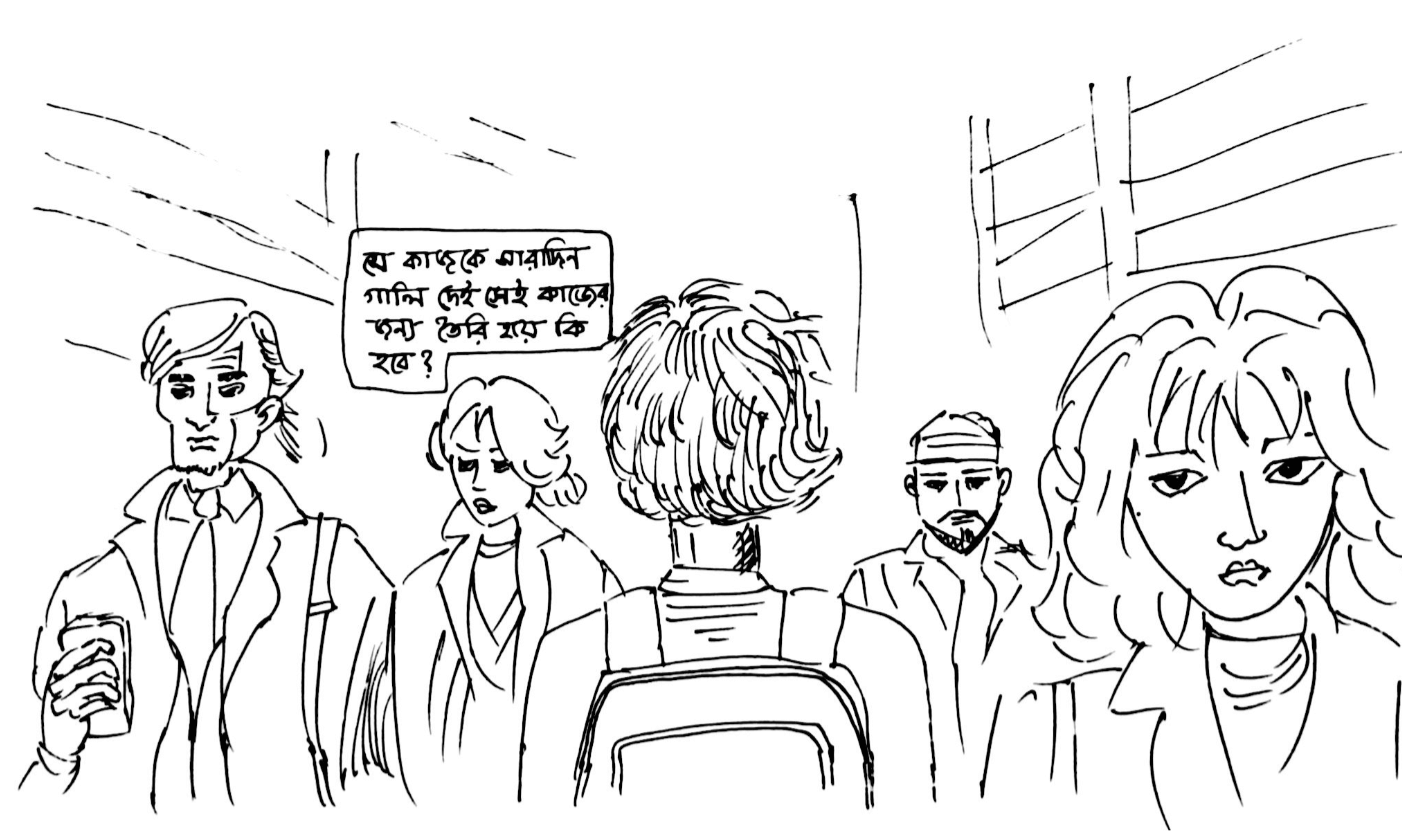 যে কাজকে সারাদিন
গালি দেই সেই কাজের
জন্য তৈরি হয়ে কি
হবে?